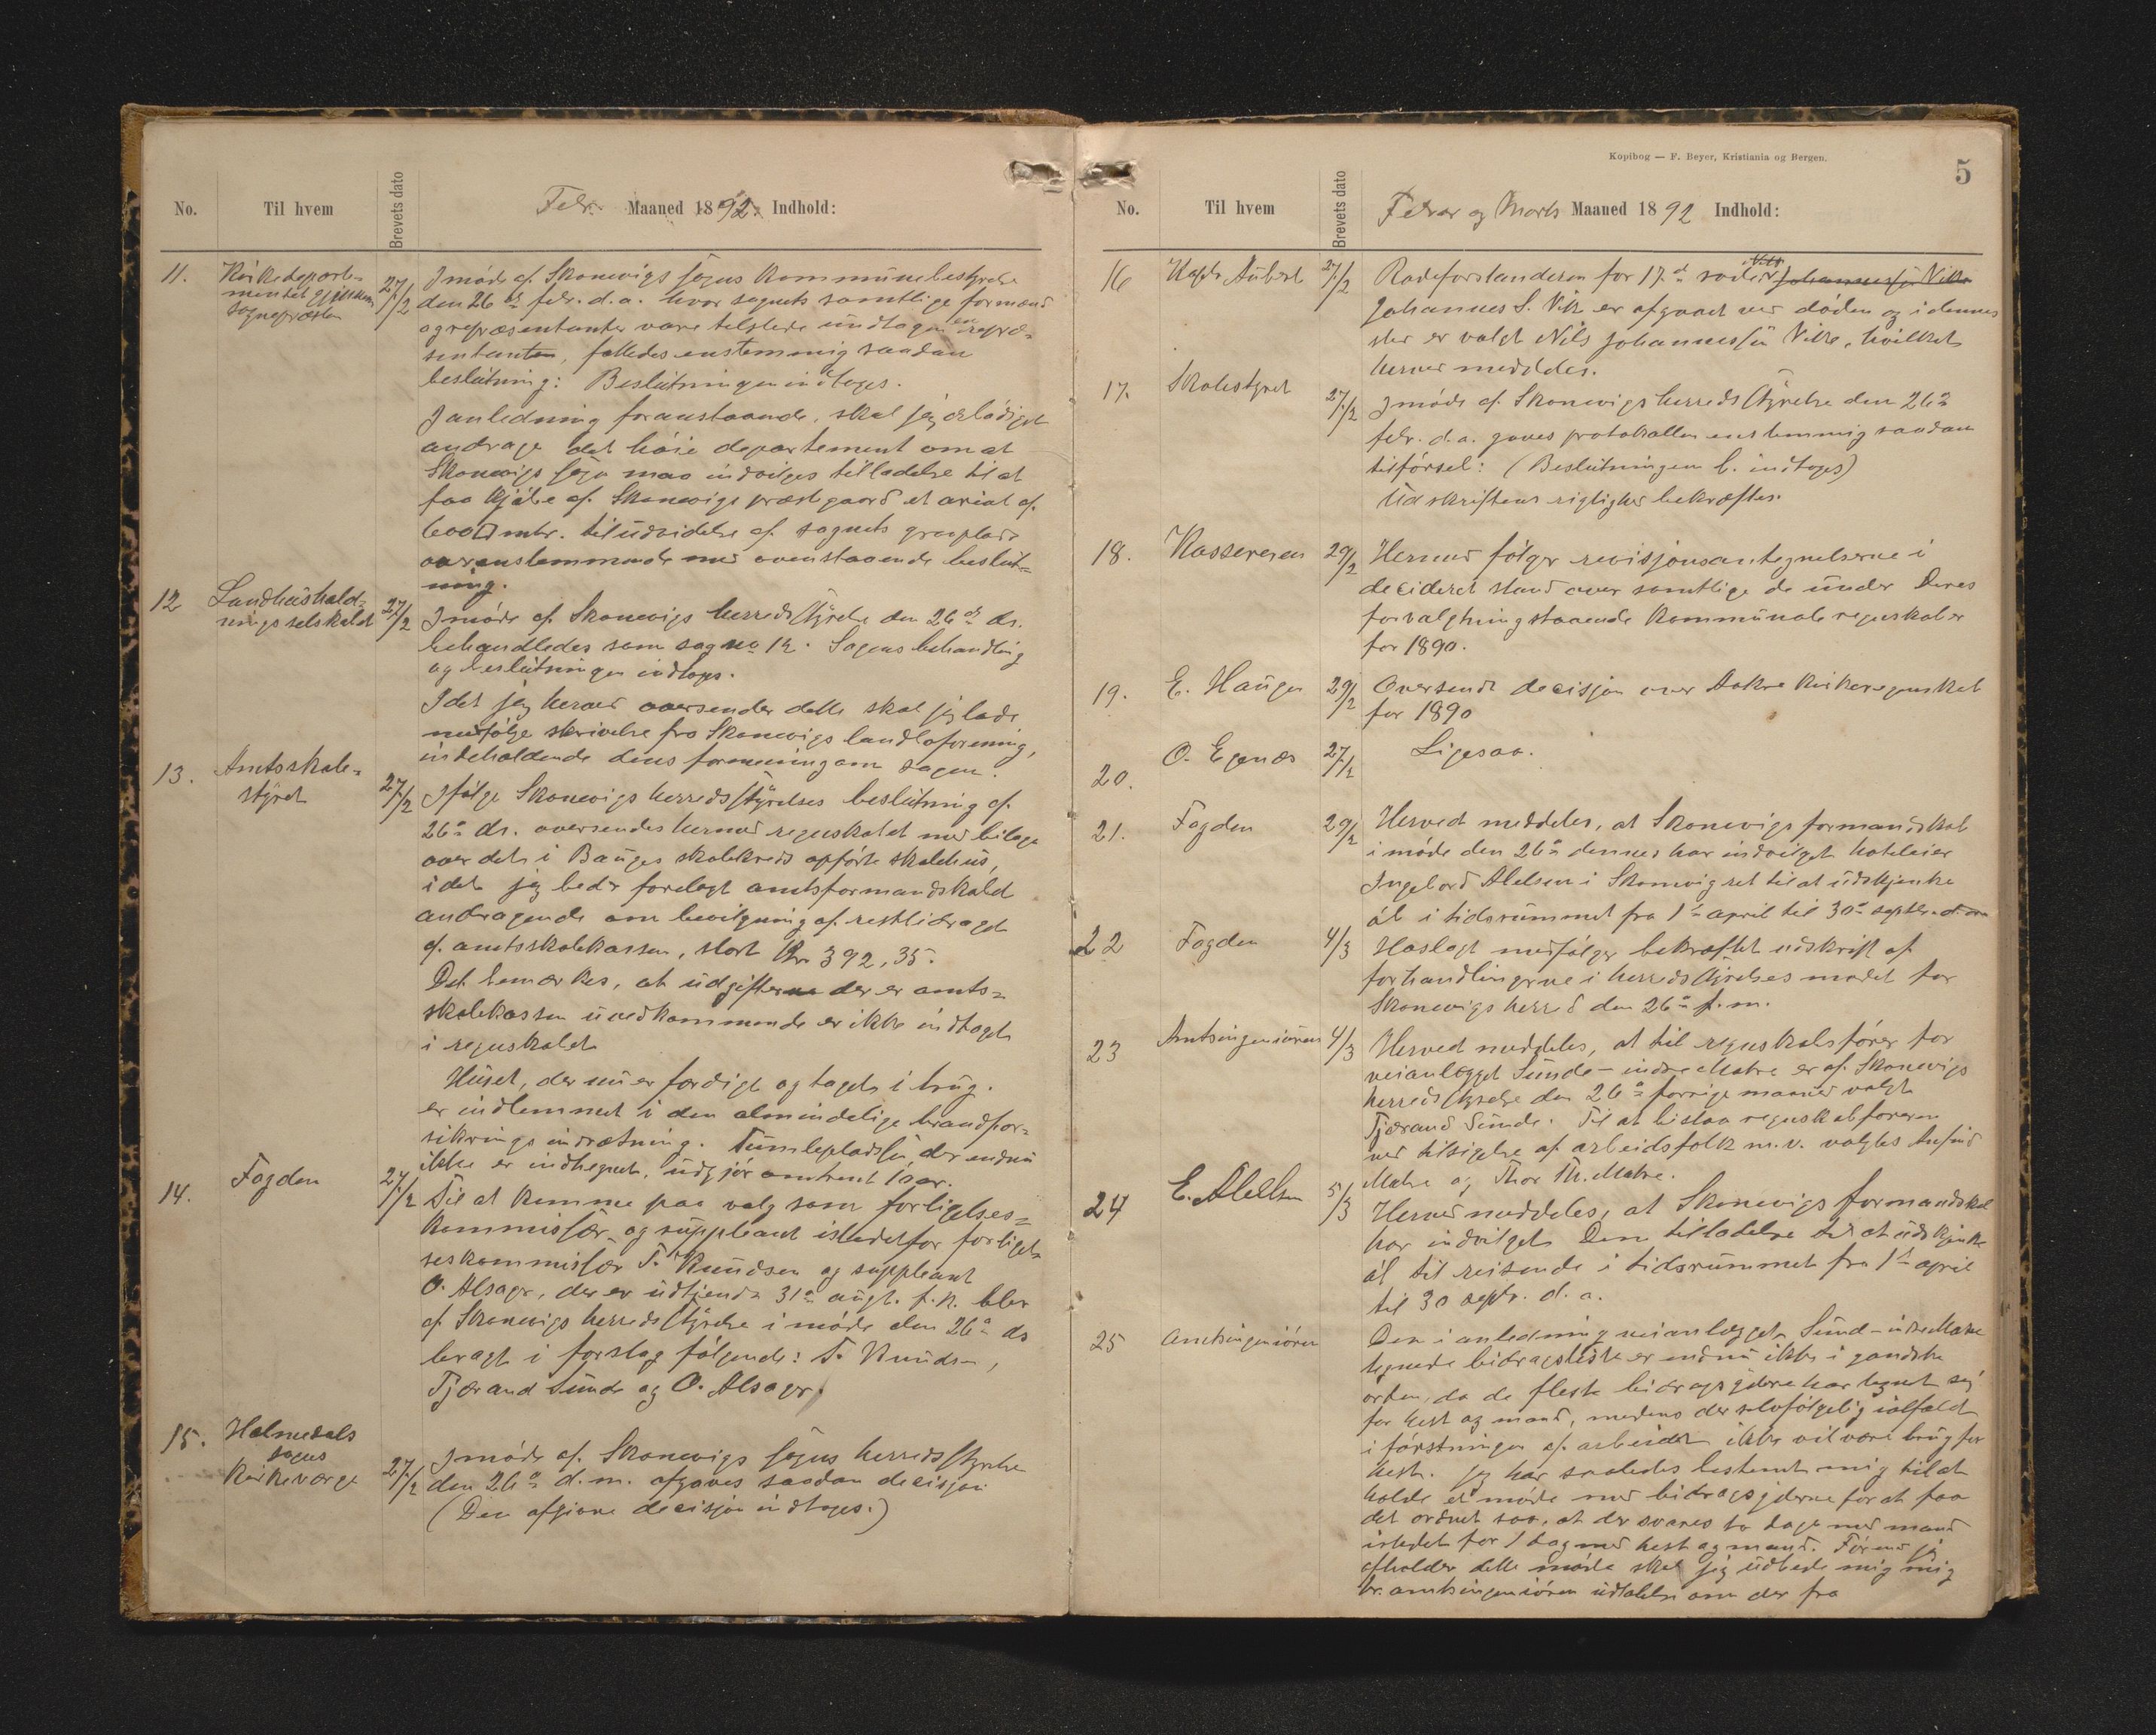 No. Til hvem Brevets dato Febr. Maaned 1892. Indhold:
11. Kirkedeparte-
mentet gjennem
sognepræsten
27/2 I møde af Skonevigs sogns kommunebestyrelse
den 26de febr. d.a. hvor sognets samtlige formænd
og repræsentanter vare tilstede undtagen en repræ-
sentanten, fattedes enstemmig saadan
beslutning: Beslutningen indtoges.
I anledning foranstaaende, skal jeg ærbødigst
andrage det høie departement om at
Skonevigs sogn maa indvilges tilladelse til at
faa kjøbe af Skonevigs prestegaard et areal af
600 □ mtr. til udvidelse af sognets gravplads
overensstemmende med ovenstaaende beslut-
ning.
12 Landhushold-
ningsselskabet
27/2 I møde af Skonevigs herredsstyrelse den 26de ds.
behandledes som sag no 12. Sagens behandling
og beslutningen indtoges.
Idet jeg herved oversender dette skal jeg lade
medfølge skrivelse fra Skonevigs landboforening,
indeholdende dens formening om sagen.
13. Amtsskole-
styret
27/2 Ifølge Skonevigs herredsstyrelses beslutning af
26de ds. oversendes hermed regnskabet med bilage
over det i Bauges skolekreds opførte skolehus,
idet jeg beder forelagt amtsformandskabet
andragende om bevilgning af restbidraget
af amtsskolekassen, stort Kr. 392,35.
Det bemærkes, at udgifterne der er amts-
skolekassen uvedkommende er ikke indtaget
i regnskabet
Huset, der nu er færdigt og taget i brug.
er indlemmet i den almindelige brandfor-
sikrings indretning. Tumlepladsen, der endnu
ikke er indhegnet, udgjør omtrent 1 ar.
14. Fogden
27/2 Til at komme paa valg som forligelses-
kommissær og suppleant istedetfor forligel-
seskommissær T. Knudsen og suppleant
O. Alsager, der er udtjent 31te augt. f.k. blev
af Skonevigs herredsstyrelse i møde den 26de ds
bragt i forslag følgende: T. Knudsen,
Tjærand Sunde og O. Alsager.
15. Holmedals
sogns
Kirkeværge
27/2 I møde af Skonevigs sogns herredsstyrelse
den 26de d.m. afgaves saadan decisjon
(Den afgivne decisjon indtoges.)
Kopibog — F. Beyer, Kristiania og Bergen.
5
No. Til hvem Brevets dato Febuar og Marts Maaned 1892 Indhold:
16 Kapt. Aubert 27/2 Rodeforstanderen for 17de rode Johannes Vikse
Johannes S. Vik er afgaaet ved døden og i dennes
sted er valgt Nils Johannessen Vikse, hvilket
herved meddeles.
17. Skolestyret 27/2 I møde af Skonevigs herredsstyrelse den 26de
febr. d.a. gaves protokollen enstemmig saadan
tilførsel: (Beslutningen b. indtoges)
Udskriftens rigtighed bekræftes.
18. Kassereren 29/2 Hermed følger revisjonsantegnelserne i
decideret stand over samtlige de under Deres
forvaltning staaende kommunale regnskaber
for 1890.
19. E. Haugen 29/2 Oversendt decisjon over Aakre kirkeregnskab
for 1890
20. O. Egenæs 27/2 Ligesaa.
21. Fogden 29/2 Herved meddeles, at Skonevigs formandskab
i møde den 26de dennes har indvilget hoteleier
Ingebord Abelsen i Skonevig ret til at udskjenke
øl i tidsrummet fra 1ste april til 30te septbr. d.a.
22 Fogden 4/3 Hoslagt medfølger bekræftet udskrift af
forhandlingerne i herredsstyrelses mødet for
Skonevigs herred den 26de f.m.
23 Amtsingeniøren 4/3 Herved meddeles, at til regnskabsfører for
veianlægget Sunde - indre Matre er af Skonevigs
herredsstyrelse den 26de forrige maaned valgt
Tjærand Sunde. Til at bistaa regnskabsføreren
ved tilsigelse af arbeidsfolk m.v. valgtes Anfind
Matre og Thor Th. Matre.
24 E. Abelsen 5/3 Herved meddeles, at Skonevigs formandskab
har indvilget Dem tilladelse til at udskjenke
øl til reisende i tidsrummet fra 1ste april
til 30 septr. d.a.
25 Amtsingeniøren Den i anledning veianlægget Sund - indre Matre
tegnede bidragsliste er endnu ikke i gandske
orden, da de fleste bidragsydere har tegnet sig
for hest og mand, medens der selvfølgelig ialfald
i førstningen af arbeidet ikke vil være brug for
hest. Jeg har saaledes bestemt mig til at
holde et møde med bidragsyderne for at faa
det ordnet saa, at der svares to dage med mand
istedet for 1 dag med hest og mand. Førend jeg
afholder dette møde skal jeg udbede mig mig
hr. amtsingeniøren udtalelse om der fra